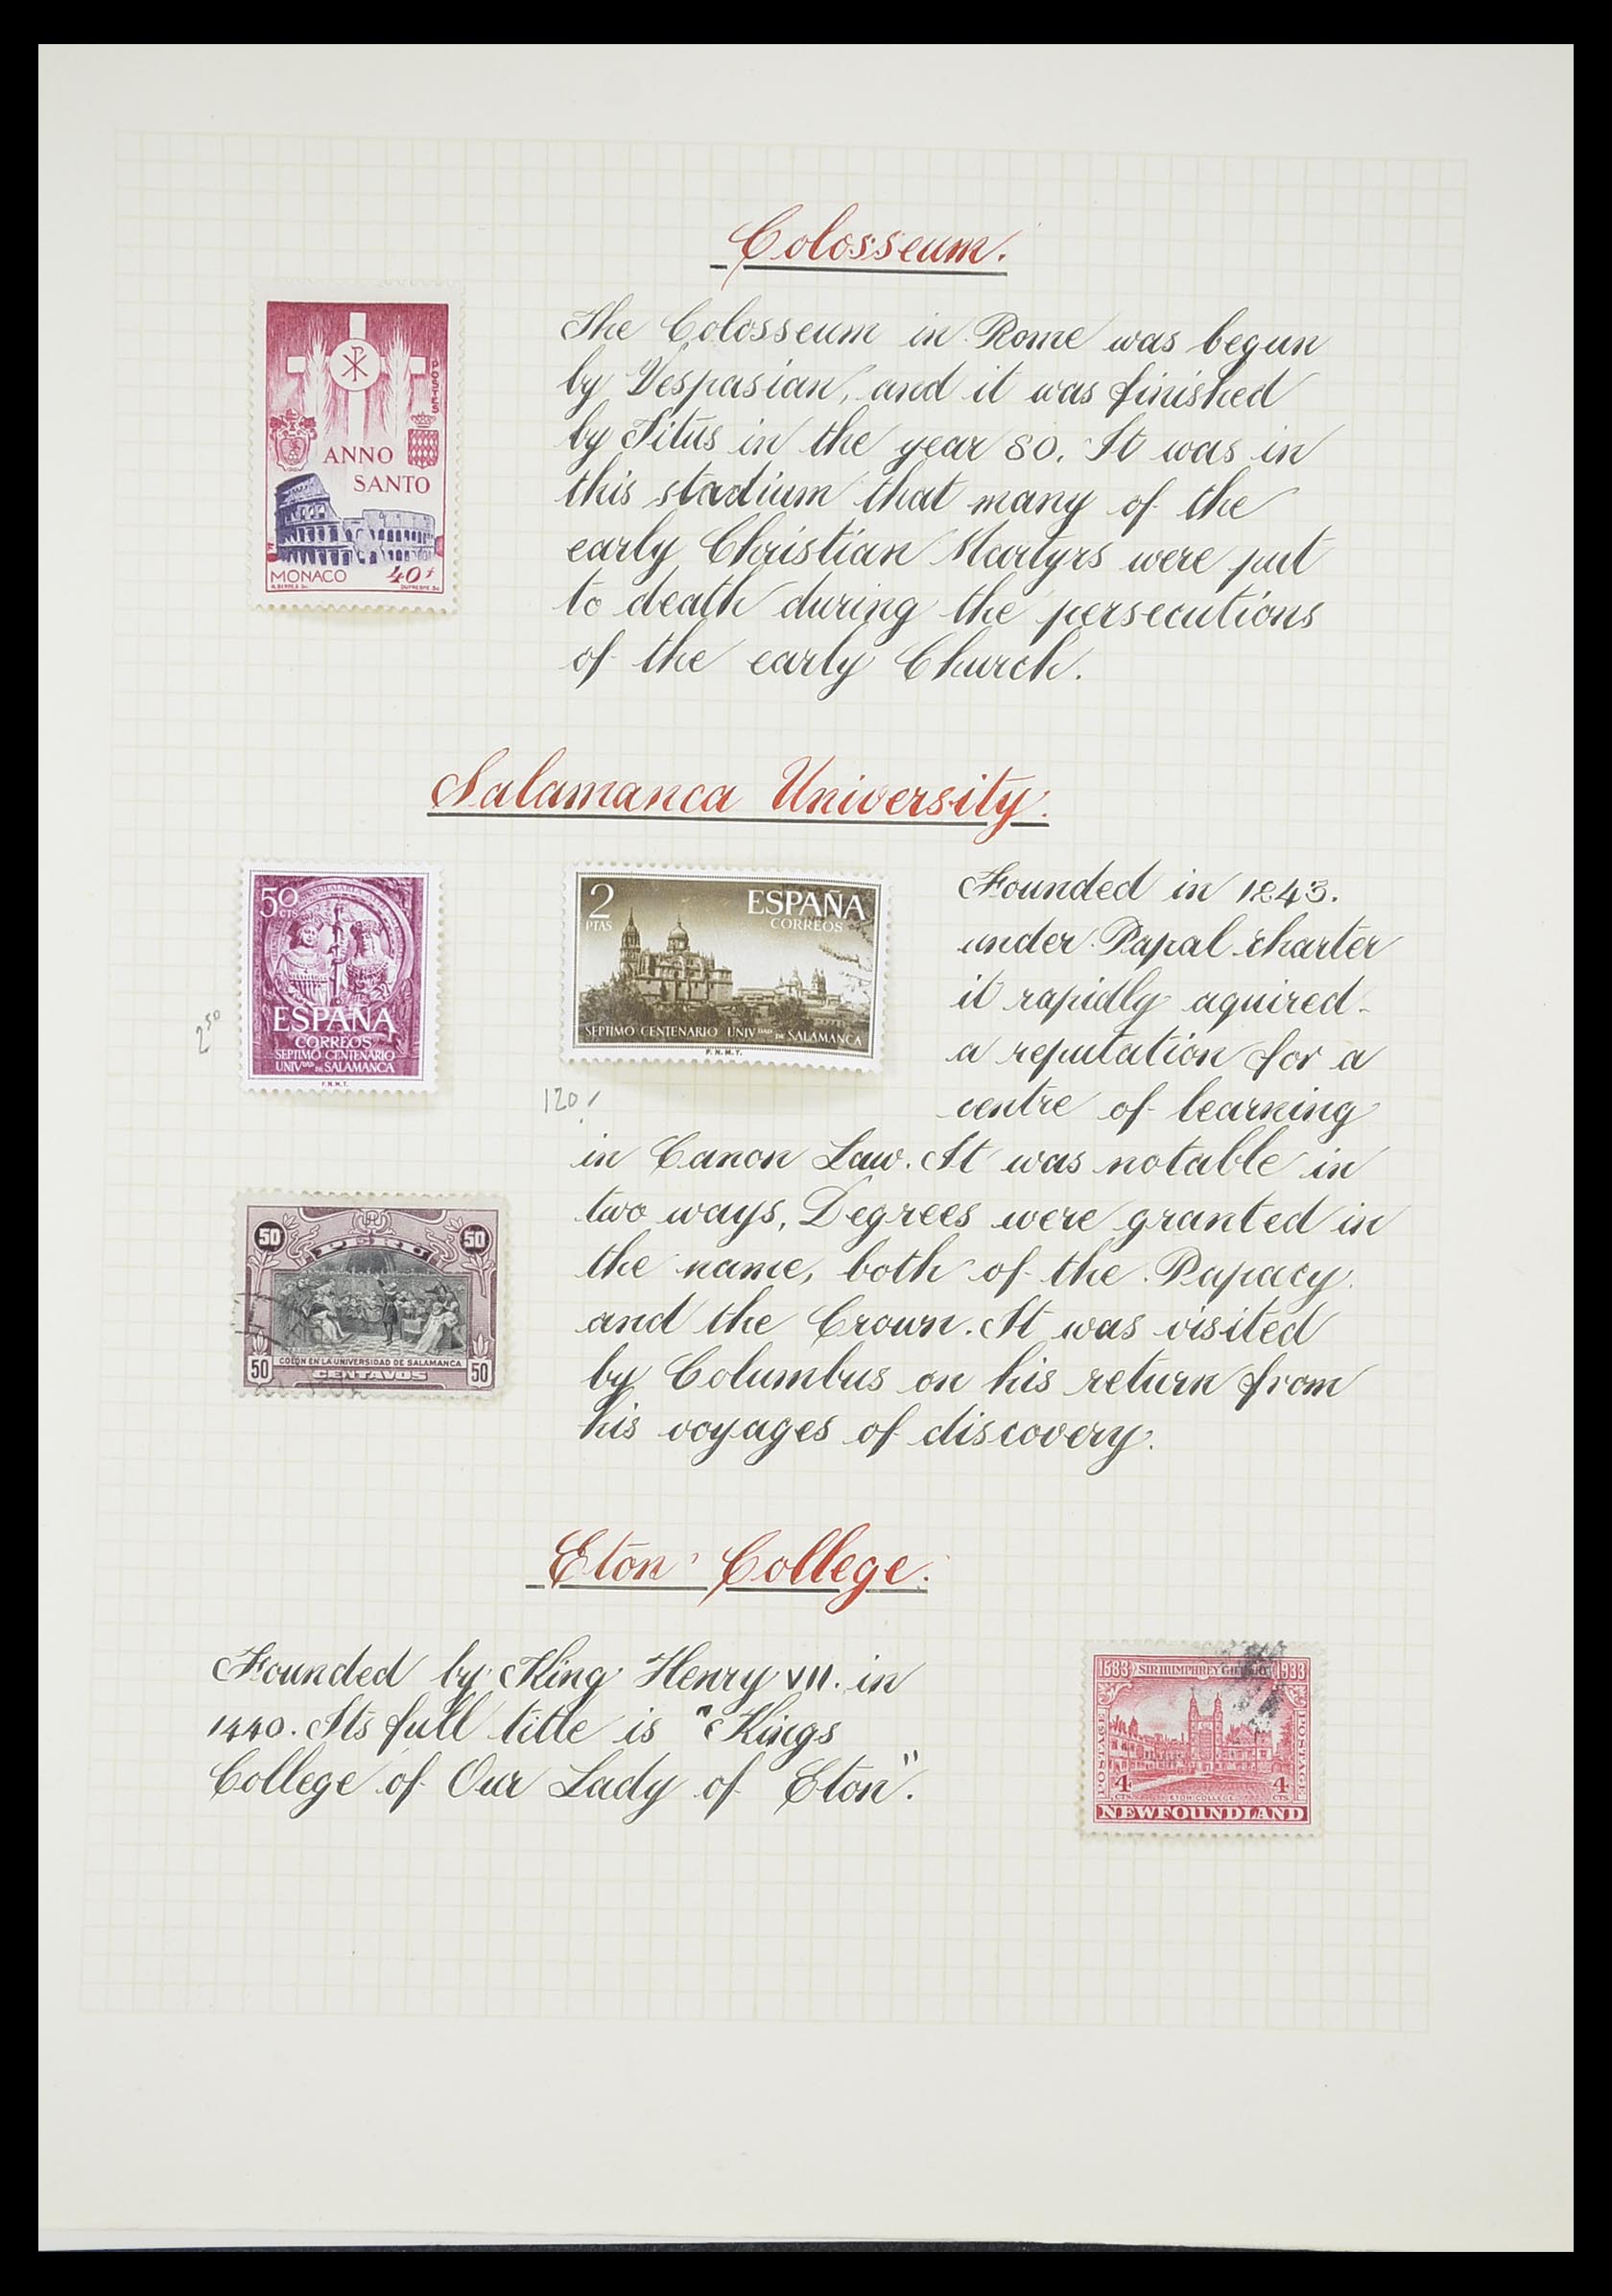 Colosseum.
POSTES
ANNO
SANTO
MONACO 40f
The Colosseum in Rome was begun
by Vespasian, and it was finished
by Titus in the year 80. It was in
this stadium that many of the
early Christian Martyrs were put
to death during the persecutions
of the early Church.
Salamanca University.
50
CTS
ESPAÑA
CORREOS
SEPTIMO CENTENARIO
UNIVDAD DE SALAMANCA
F.N.M.T.
250
2
PTAS
ESPAÑA
CORREOS
SEPTIMO CENTENARIO UNIVDAD DE SALAMANCA
F.N.M.T.
120
Founded in 1243.
under Papal charter
it rapidly aquired
a reputation for a
centre of learning
in Canon Law. It was notable in
two ways, Degrees were granted in
the name, both of the Papacy
and the Crown. It was visited
by Columbus on his return from
his voyages of discovery.
50 PERU 50
COLON EN LA UNIVERSIDAD DE SALAMANCA
50 CENTAVOS 50
Eton College.
Founded by King Henry VII. in
1440. Its full title is "Kings
College of Our Lady of Eton".
1583 SIR HUMPHREY GILBERT 1933
POSTAGE POSTAGE
4 CTS. ETON COLLEGE 4 CTS.
NEWFOUNDLAND